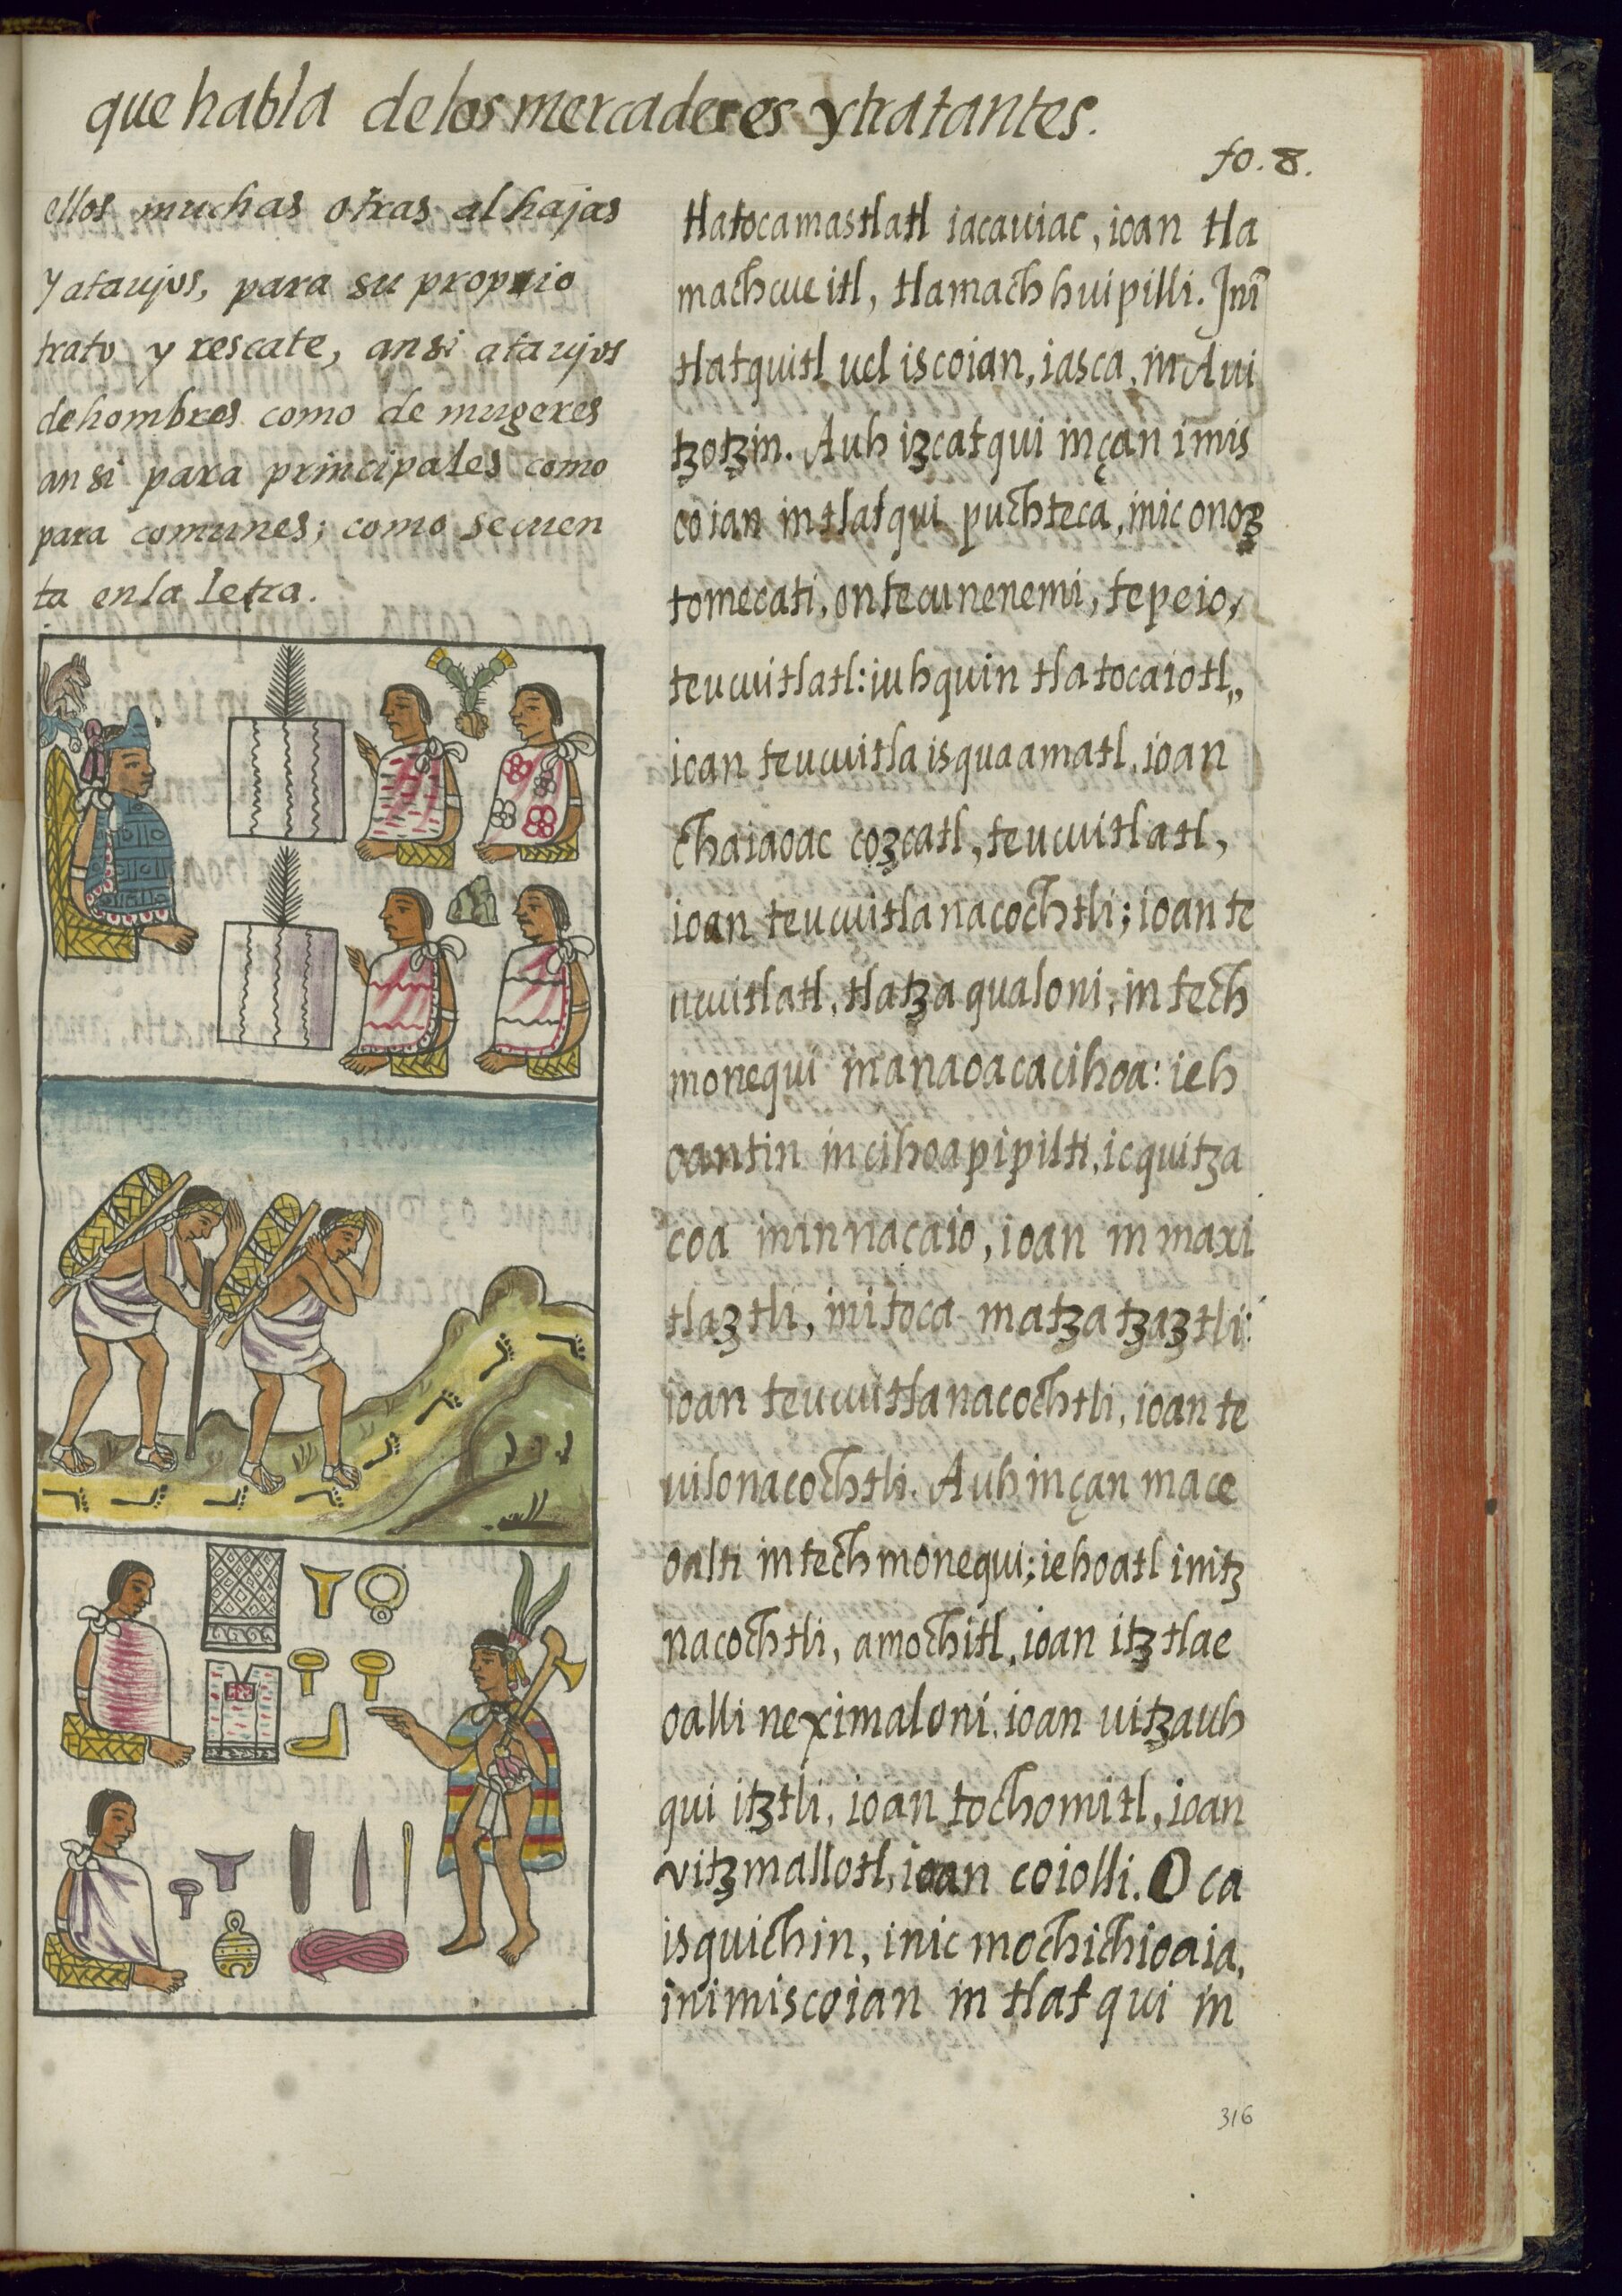 que habla de los mercaderes y tratantes.
fo. 8.
ellos muchas otras alhajas
y ataujos, para su proprio
trato y rescate, ansi ataujos
de hombres como de mugeres
ansi para principales como
para comunes; como se cuen
ta en la letra.
tlatocamastlatl iacauiac, ioan tla
machcueitl, tlamachhuipilli. Jnī
tlatquitl uel iscoian, iasca, in Aui
tʒotʒin. Auh iʒcatqui inçan imis
coian intlatqui puchteca, inic onoʒ
tomecati, ontecunenemi, tepeio,
teucuitlatl: iuhquin tlatocaiotl,,
ioan teucuitla isquaamatl, ioan
chaiaoac coʒcatl, teucuitlatl,
ioan teucuitlanacochtli; ioan te
ucuitlatl, tlatʒaqualoni, intech
monequi inanaoaca cihoa: ieh
oantin in cihoapipilti, ic quitʒa
coa inin nacaio, ioan in maxi
tlaʒtli, in itoca matʒatʒaʒtli:
ioan teucuitlanacochtli, ioan te
uilonacochtli. Auh inçan mace
oalti intech monequi; iehoatl in itʒ
nacochtli, amochitl, ioan itʒtlae
oalli neximaloni, ioan uitʒauh
qui itʒtli, ioan tochomitl, ioan
vitʒmallotl, ioan coiolli. O ca
isquichin, inic mochichioaia,
inimiscoian in tlatqui in
316